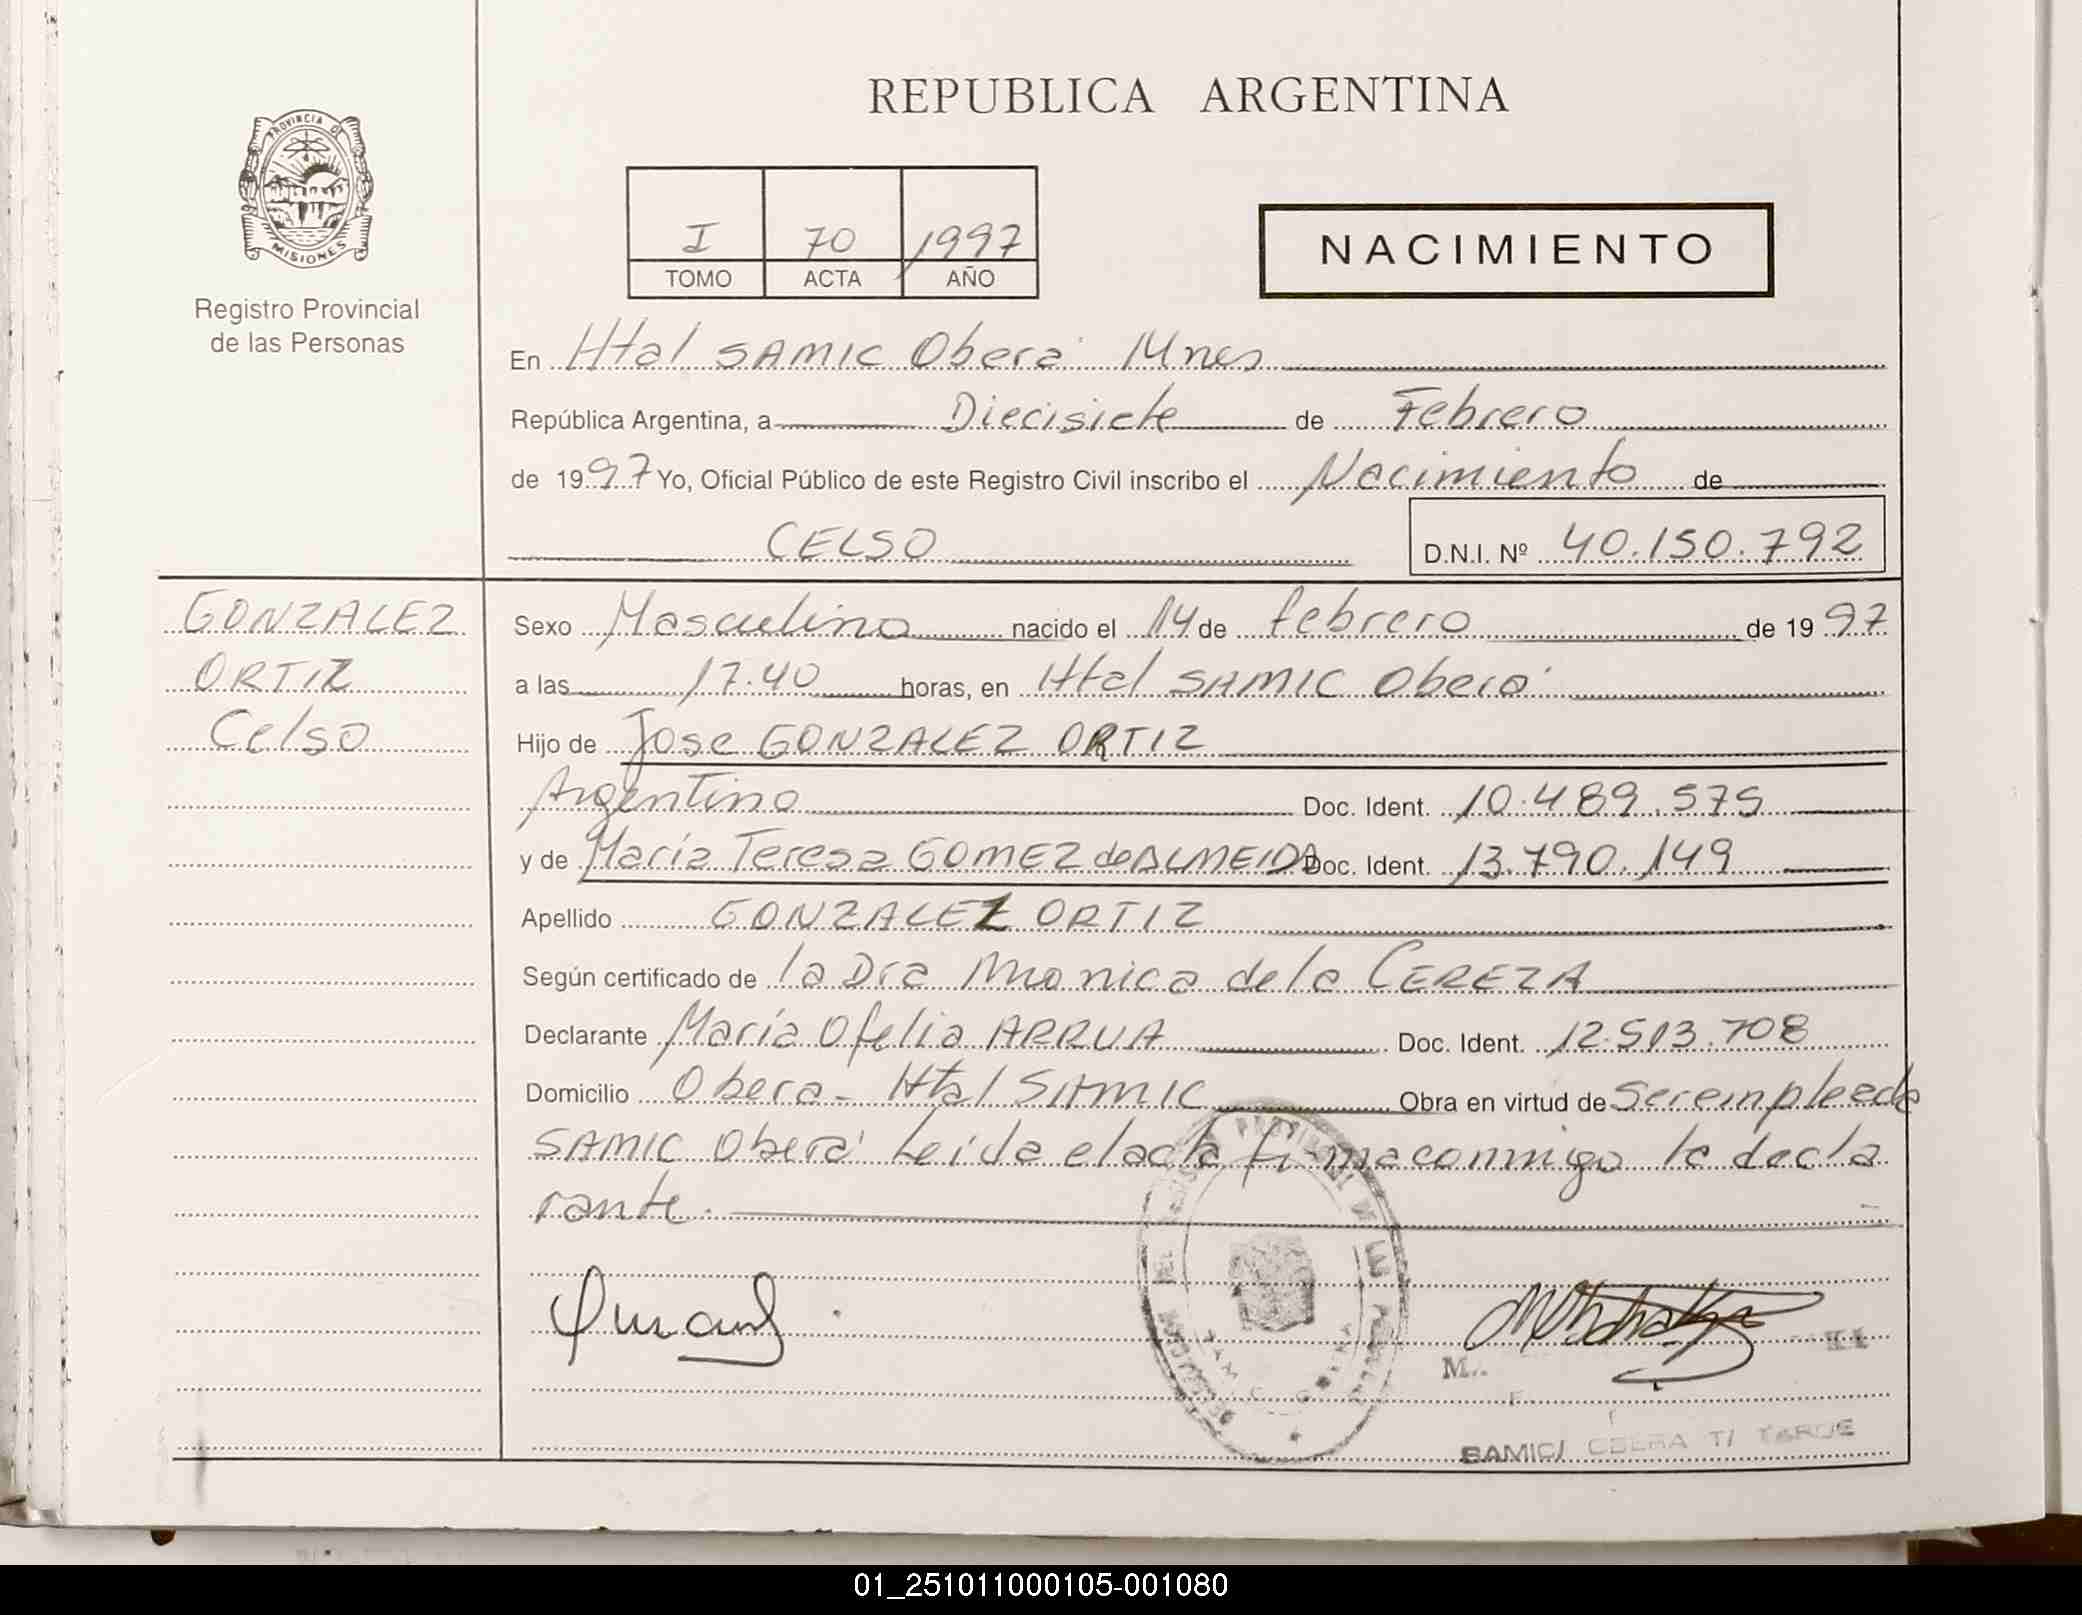 REPUBLICA ARGENTINA
PROVINCIA DE
MISIONES
Registro Provincial
de las Personas
I 70 1997
TOMO ACTA AÑO
NACIMIENTO
En Htal SAMIC Oberá Mnes
República Argentina, a Diecisiete de Febrero
de 1997 Yo, Oficial Público de este Registro Civil inscribo el Nacimiento de
CELSO D.N.I. Nº 40.150.792
GONZALEZ
ORTIZ
Celso
Sexo Masculino nacido el 14 de febrero de 1997
a las 17.40 horas, en Htal SAMIC Oberá
Hijo de Jose GONZALEZ ORTIZ
Argentino Doc. Ident. 10.489.575
y de María Teresa GOMEZ de ALMEIDA Doc. Ident. 13.790.149
Apellido GONZALEZ ORTIZ
Según certificado de la Dra Monica de la CEREZA
Declarante María Ofelia ARRUA Doc. Ident. 12.513.708
Domicilio Obera - Htal SAMIC Obra en virtud de ser empleada
SAMIC Oberá Leída el acta firma conmigo la decla
rante.
SAMIC/ OBERA T/ TARDE
01_251011000105-001080